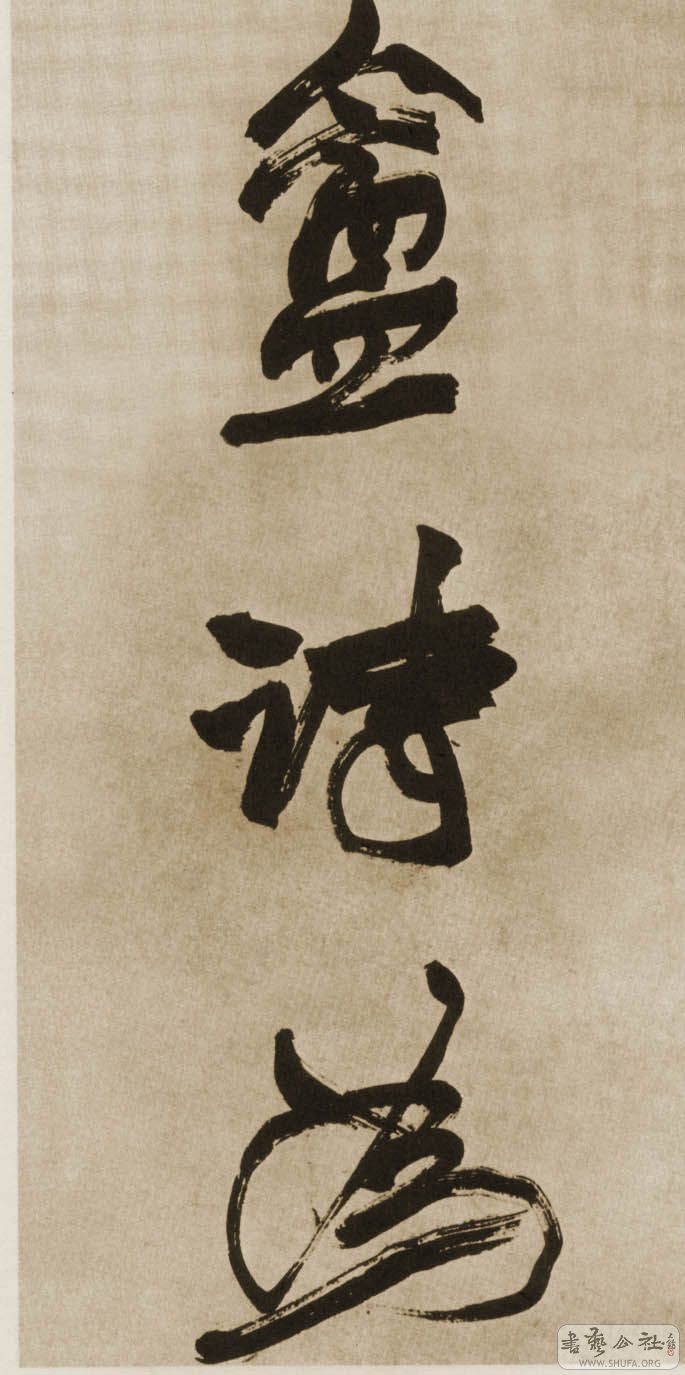 盦
詩
為
書藝公社
WWW.SHUFA.ORG